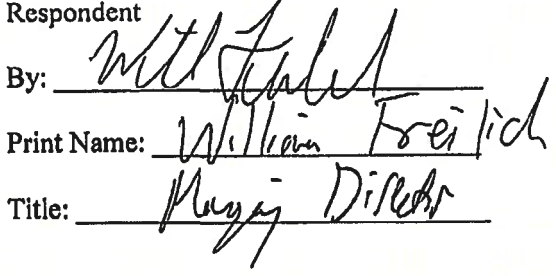 Respondent
By:
Print Name: William Freilich
Title: Managing Director